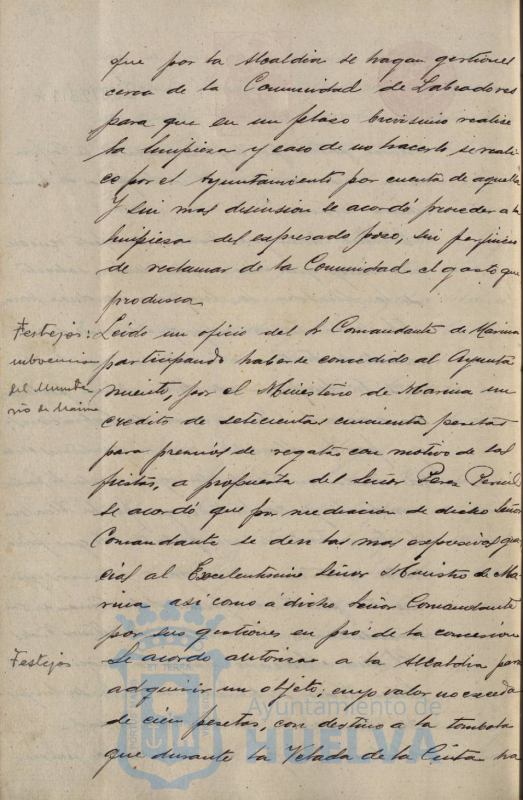 que por la Alcaldia se hagan gestiones
cerca de la Comunidad de Labradores
para que en un plazo brevisimo realice
la limpieza y caso de no hacerlo se reali
ce por el Ayuntamiento por cuenta de aquella
Y sin mas discusion se acordó proceder a la
limpieza del expresado pozo, sin perjuicio
de reclamar de la Comunidad el gasto que
produzca
Festejos:
subvencion
del Ministe
rio de Marina
Leido un oficio del Sr Comandante de Marina
participando haberse concedido al Ayunta
miento, por el Ministerio de Marina un
credito de setecientas cincuenta pesetas
para premios de regatas con motivo de las
fiestas, a propuesta del Señor Perez
se acordó que por mediacion de dicho Señor
Comandante se den las mas expresivas gra
cias al Excelentisimo Señor Ministro de Ma
rina así como á dicho Señor Comandante
por sus gestiones en pró de la concesion
Festejos
Se acordo autorizar a la Alcaldia para
adquirir un objeto; cuyo valor no exceda
de cien pesetas, con destino a la tombola
que durante la Velada de la Cinta ha
Ayuntamiento de
HUELVA